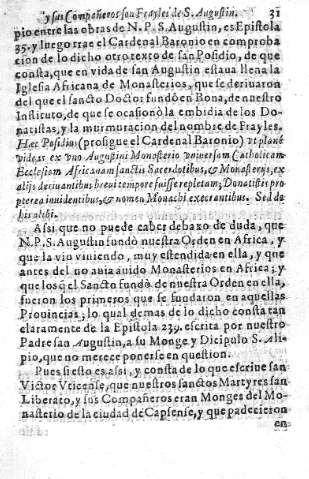 y sus Compañeros son Frayles de S. Augustin. 31
pio entre las obras de N. P. S. Augustin, es Epistola
35. y luego trae el Cardenal Baronio en comproba
cion de lo dicho otro texto de san Posidio, de que
consta, que en vida de san Augustin estaua llena la
Iglesia Africana de Monasterios, que se deriuaron
del que el sancto Doctor fundò en Bona, de nuestro
Instituto, de que se ocasionò la embidia de los Do-
natistas, y la murmuracion del nombre de Frayles.
Hæc Posidius (prosigue el Cardenal Baronio) vt planè
videas ex vno Augustini Monasterio vniuersam Catholicam
Ecclesiam Africanam sanctis Sacerdotibus, & Monasterijs, ex
alijs deriuantibus breui tempore fuisse repletam; Donatistis pro
pterea inuidentibus, & nomen Monachi execrantibus. Sed de
his alibi.
Assi que no puede caber debaxo de duda, que
N. P. S. Augustin fundò nuestra Orden en Africa, y
que la vio viuiendo, muy estendida en ella, y que
antes del no auia auido Monasterios en Africa; y
que los q̃ el Sancto fundò de nuestra Orden en ella,
fueron los primeros que se fundaron en aquellas
Prouincias; lo qual demas de lo dicho consta tan
claramente de la Epistola 239. escrita por nuestro
Padre san Augustin, a su Monge, y Dicipulo S. Ali-
pio, que no merece ponerse en question.
Pues si esto es assi, y consta de lo que escriue san
Victor Vticense, que nuestros sanctos Martyres san
Liberato, y sus Compañeros eran Monges del Mo-
nasterio de la ciudad de Capsense, y que padecieron
en